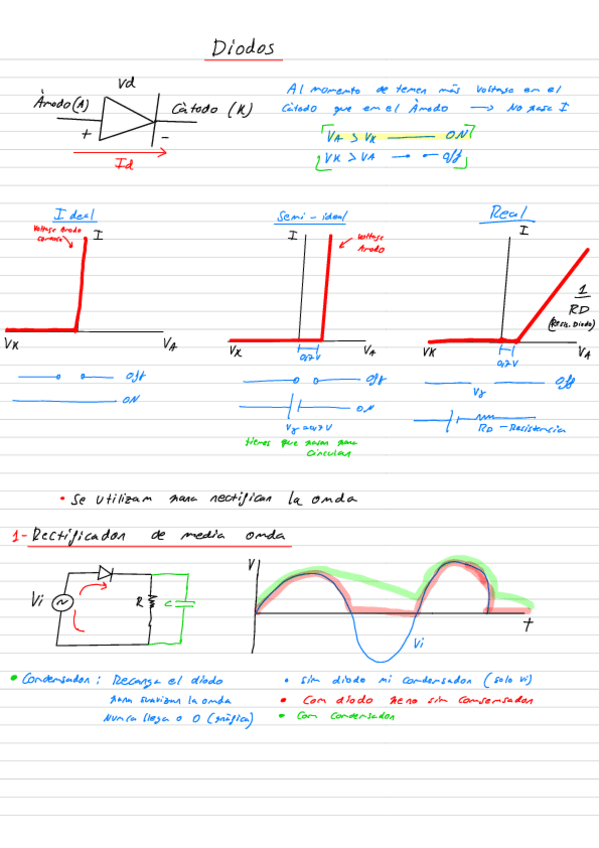 Diodos
Vd
Ànodo(A)
Càtodo (K)
+
-
Id
Al momento de tener más voltage en el
Càtodo que en el Ànodo → No pasa I
VA > VK ON
VK > VA Off
Ideal
Voltage Anodo
I
VK
VA
Off
ON
Semi-ideal
I
Voltage
Anodo
VK
VA
0,7V
Off
ON
Vγ = 0,7V
tienes que pasar para
circular
Real
I
1
RD
(Resis. Diodo)
VK
VA
0,7V
Off
Vγ
RD - Resistencia
• Se utilizan para rectificar la onda
1-Rectificador de media onda
Vi
R
C
V
t
Vi
• Condensador: Recarga el diodo
para suavizar la onda
Nunca llega a 0 (gráfica)
• sin diodo ni condensador (solo Vi)
• Con diodo pero sin condensador
• Con Condensador